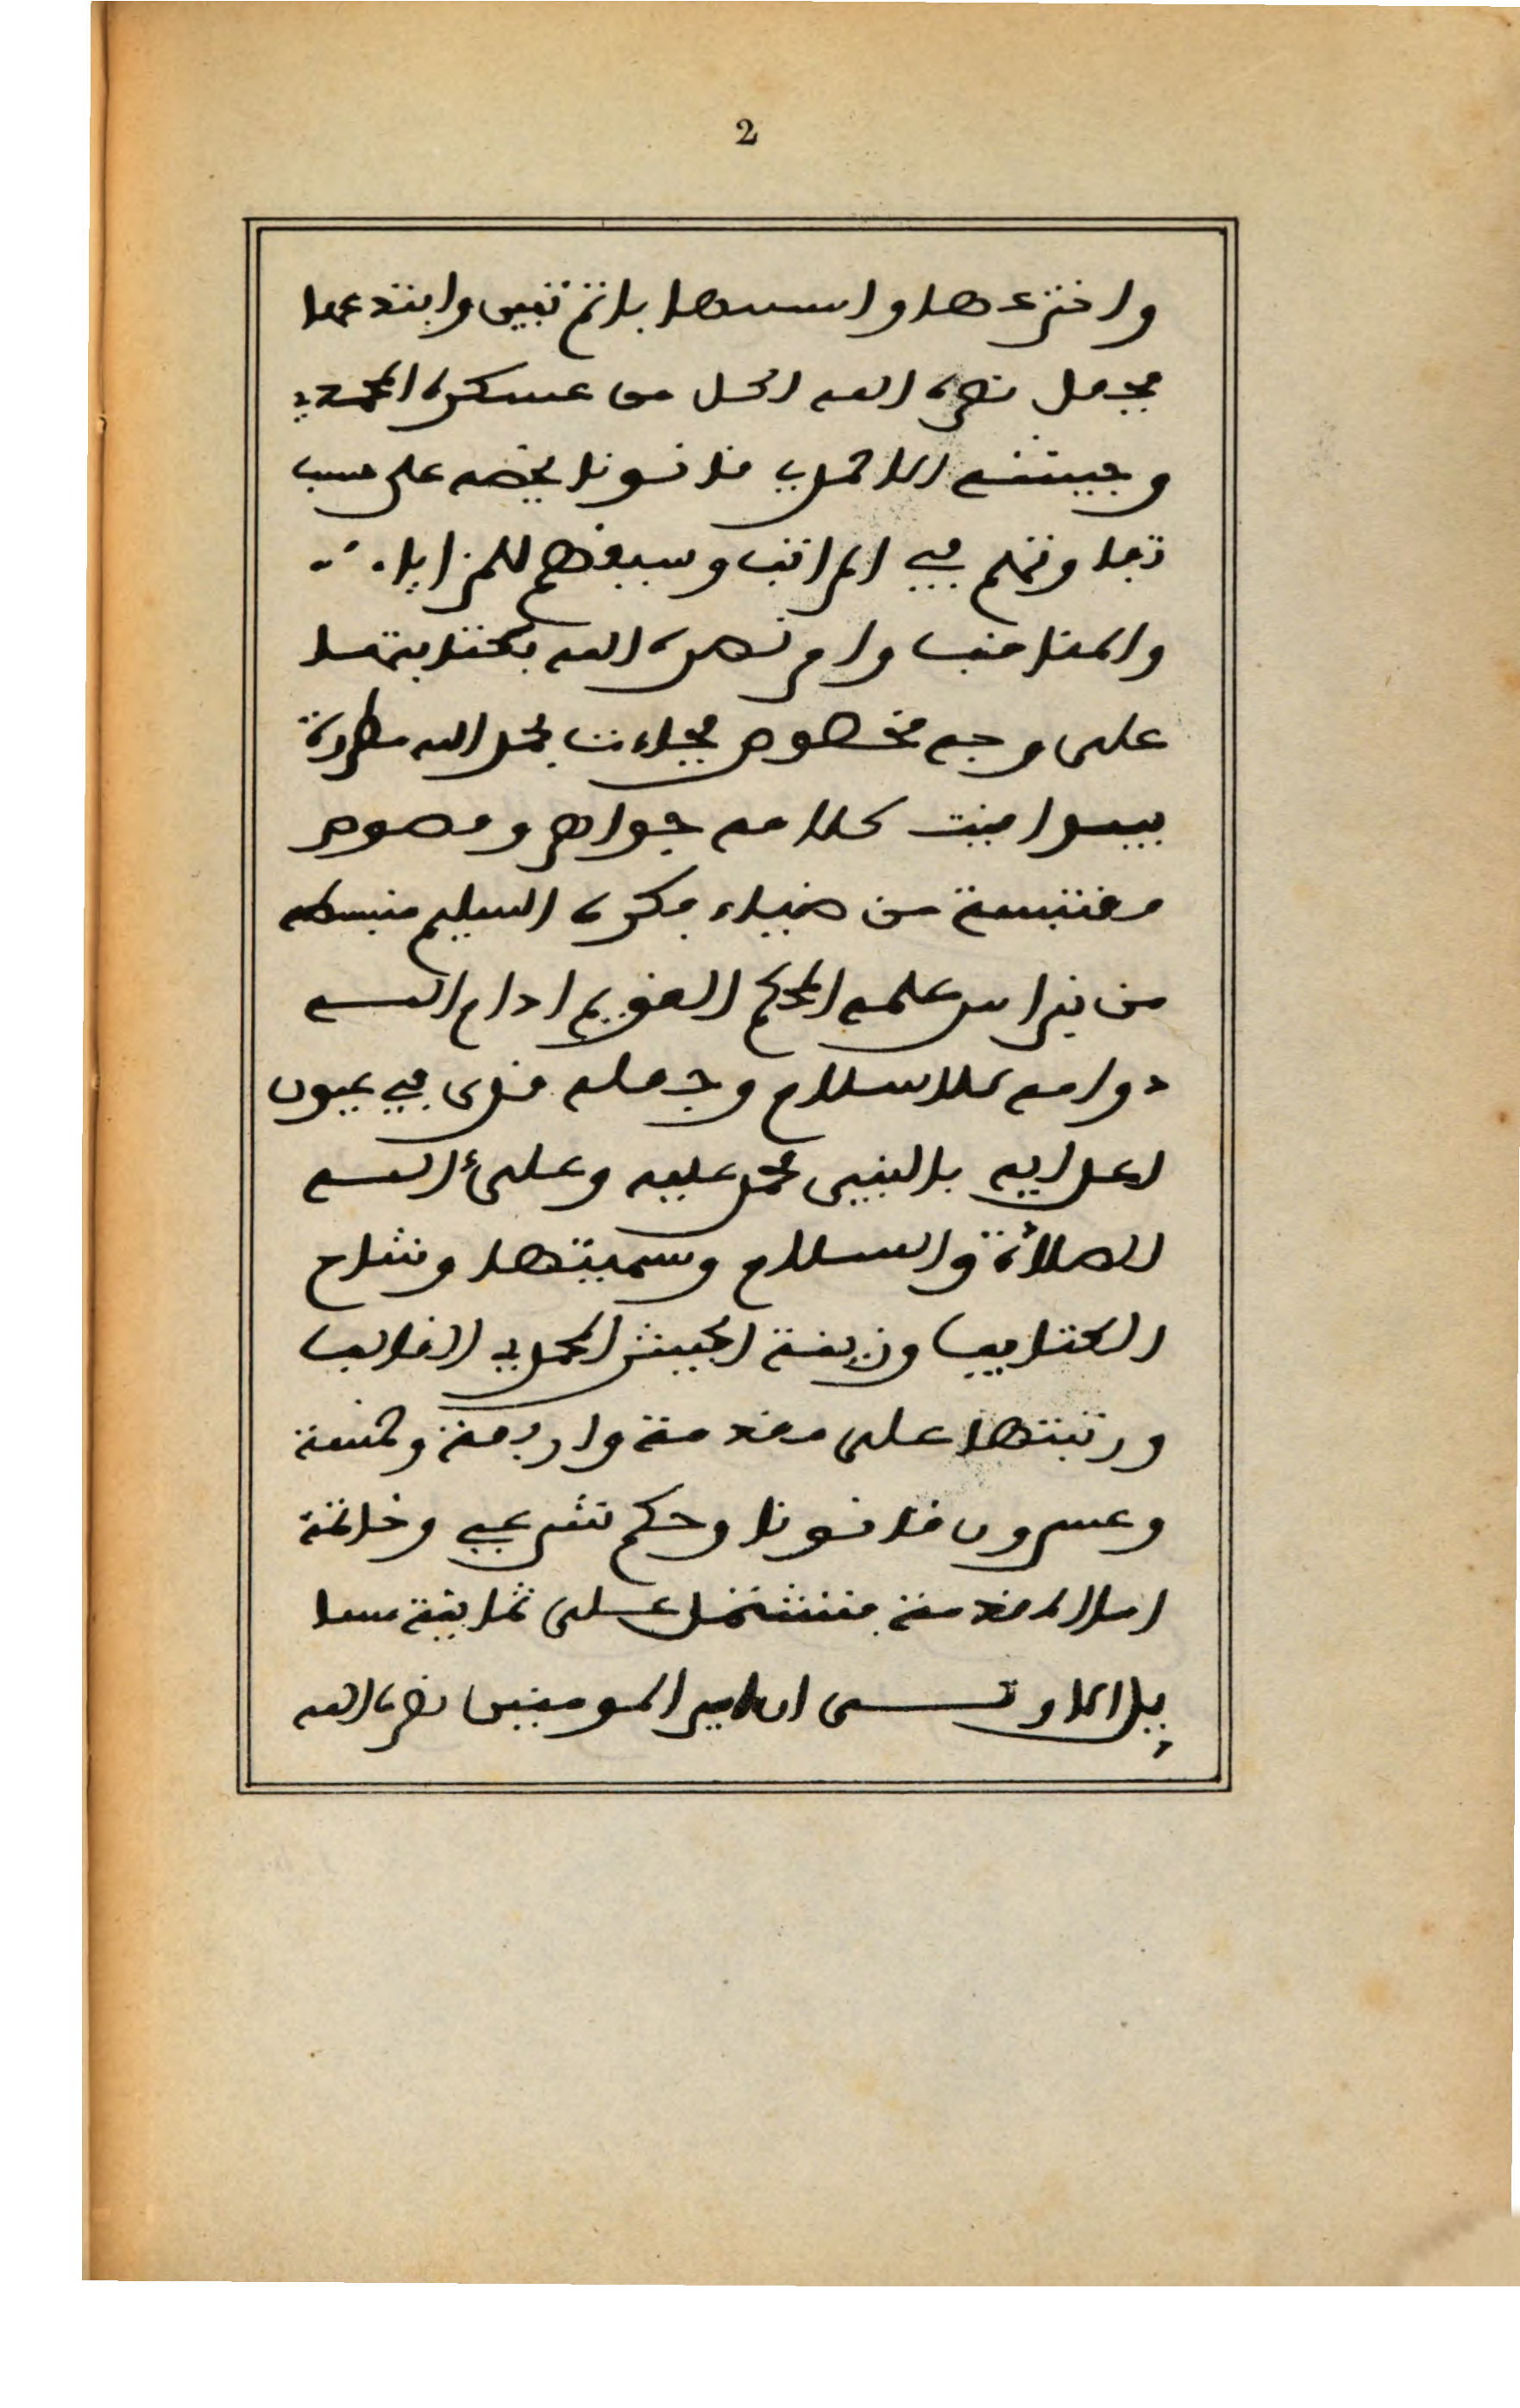 2
واخترعها واسسها باتم تبيين وابتدعها
فجعل نصره الله لكل من عسكره المحمدي
وجيشه الاحمدي قانونا يخصه على حسب
تفاوتهم في المراتب وسبقهم للمزايا
والمناقب وامر نصره الله بكتابتها
على وجه مخصوص فجاءت بحمد الله مطرزة
بيواقيت كلامه جواهر وفصوص
مقتبسة من ضياء فكره السليم منبسطه
من نبراس علمه المحكم القويم ادام الله
دوامه للاسلام وجعله قذى في عيون
اعدايه بالنبي محمد عليه وعلى ءاله
الصلاة والسلام وسميتها وشاح
الكتايب وزينة الجيش المحمدي الغالب
ورتبتها على مقدمة واربعة وخمسة
وعشرون قانونا وحكم تشريعي وخاتمة
اما المقدمة فتشتمل على ثمانية مسا
يل الاولى ان امير المومنين نصره الله